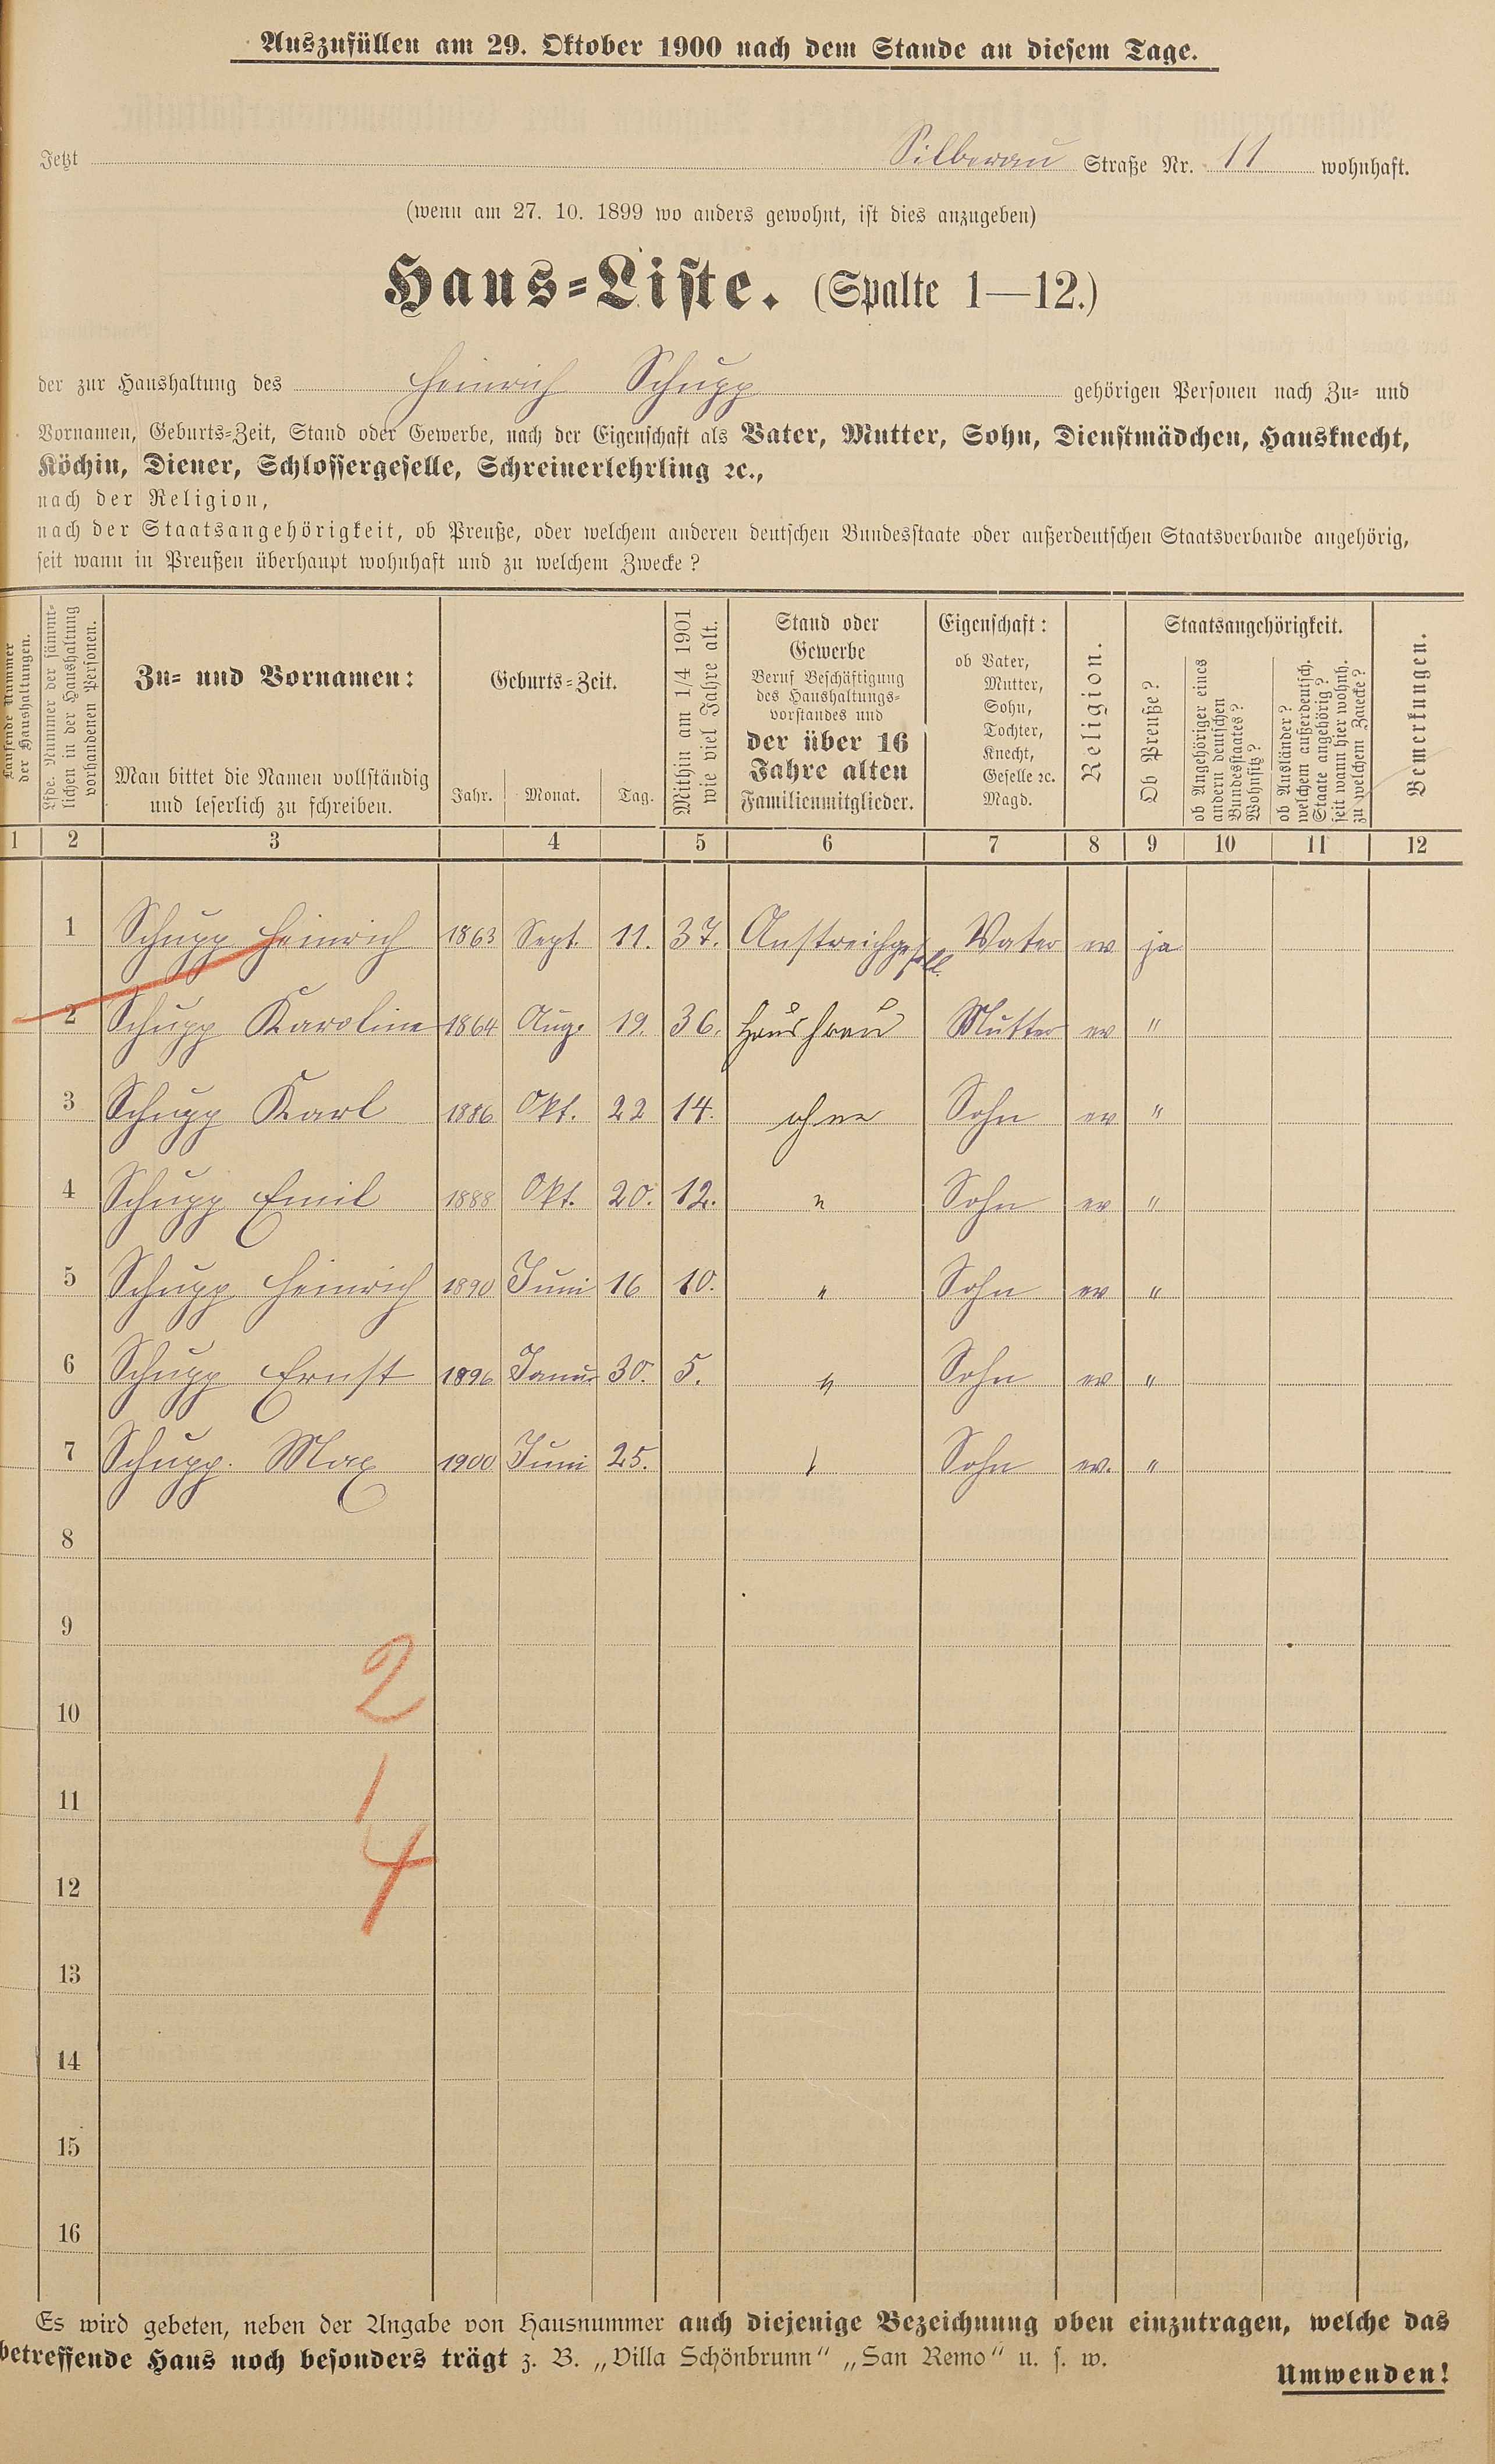 Auszufüllen am 29. Oktober 1900 nach dem Stande an diesem Tage.
Jetzt Silberau Straße Nr. 11 wohnhaft.
(wenn am 27. 10. 1899 wo anders gewohnt, ist dies anzugeben)
Haus=Liste. (Spalte 1—12.)
der zur Haushaltung des Heinrich Schupp gehörigen Personen nach Zu= und
Vornamen, Geburts=Zeit, Stand oder Gewerbe, nach der Eigenschaft als Vater, Mutter, Sohn, Dienstmädchen, Hausknecht,
Köchin, Diener, Schlossergeselle, Schreinerlehrling ꝛc.,
nach der Religion,
nach der Staatsangehörigkeit, ob Preuße, oder welchem anderen deutschen Bundesstaate oder außerdeutschen Staatsverbande angehörig,
seit wann in Preußen überhaupt wohnhaft und zu welchem Zwecke?
Laufende Nummer
der Haushaltungen.
Lfde. Nummer der sämmt=
lichen in der Haushaltung
vorhandenen Personen.
Zu= und Vornamen:
Man bittet die Namen vollständig
und leserlich zu schreiben.
Geburts=Zeit.
Jahr. Monat. Tag.
Mithin am 1/4 1901
wie viel Jahre alt.
Stand oder
Gewerbe
Beruf Beschäftigung
des Haushaltungs=
vorstandes und
der über 16
Jahre alten
Familienmitglieder.
Eigenschaft:
ob Vater,
Mutter,
Sohn,
Tochter,
Knecht,
Geselle ꝛc.
Magd.
Religion.
Staatsangehörigkeit.
Ob Preuße?
ob Angehöriger eines
andern deutschen
Bundesstaates?
Wohnsitz?
ob Ausländer?
welchem außerdeutsch.
Staate angehörig?
seit wann hier wohnh.
zu welchem Zwecke?
Bemerkungen.
1 2 3 4 5 6 7 8 9 10 11 12
1 Schupp Heinrich 1863 Sept. 11. 37. Anstreichgesell. Vater ev ja
2 Schupp Karoline 1864 Aug. 19. 36. Hausfrau Mutter ev "
3 Schupp Karl 1886 Okt. 22 14. ohne Sohn ev "
4 Schupp Emil 1888 Okt. 20. 12. " Sohn ev "
5 Schupp Heinrich 1890 Juni 16 10. " Sohn ev "
6 Schupp Ernst 1896 Januar 30. 5. " Sohn ev "
7 Schupp. Max 1900 Juni 25. " Sohn ev. "
8
9
2
10
11 1
12 4
13
14
15
16
Es wird gebeten, neben der Angabe von Hausnummer auch diejenige Bezeichnung oben einzutragen, welche das
betreffende Haus noch besonders trägt z. B. „Villa Schönbrunn“ „San Remo“ u. s. w.
Umwenden!